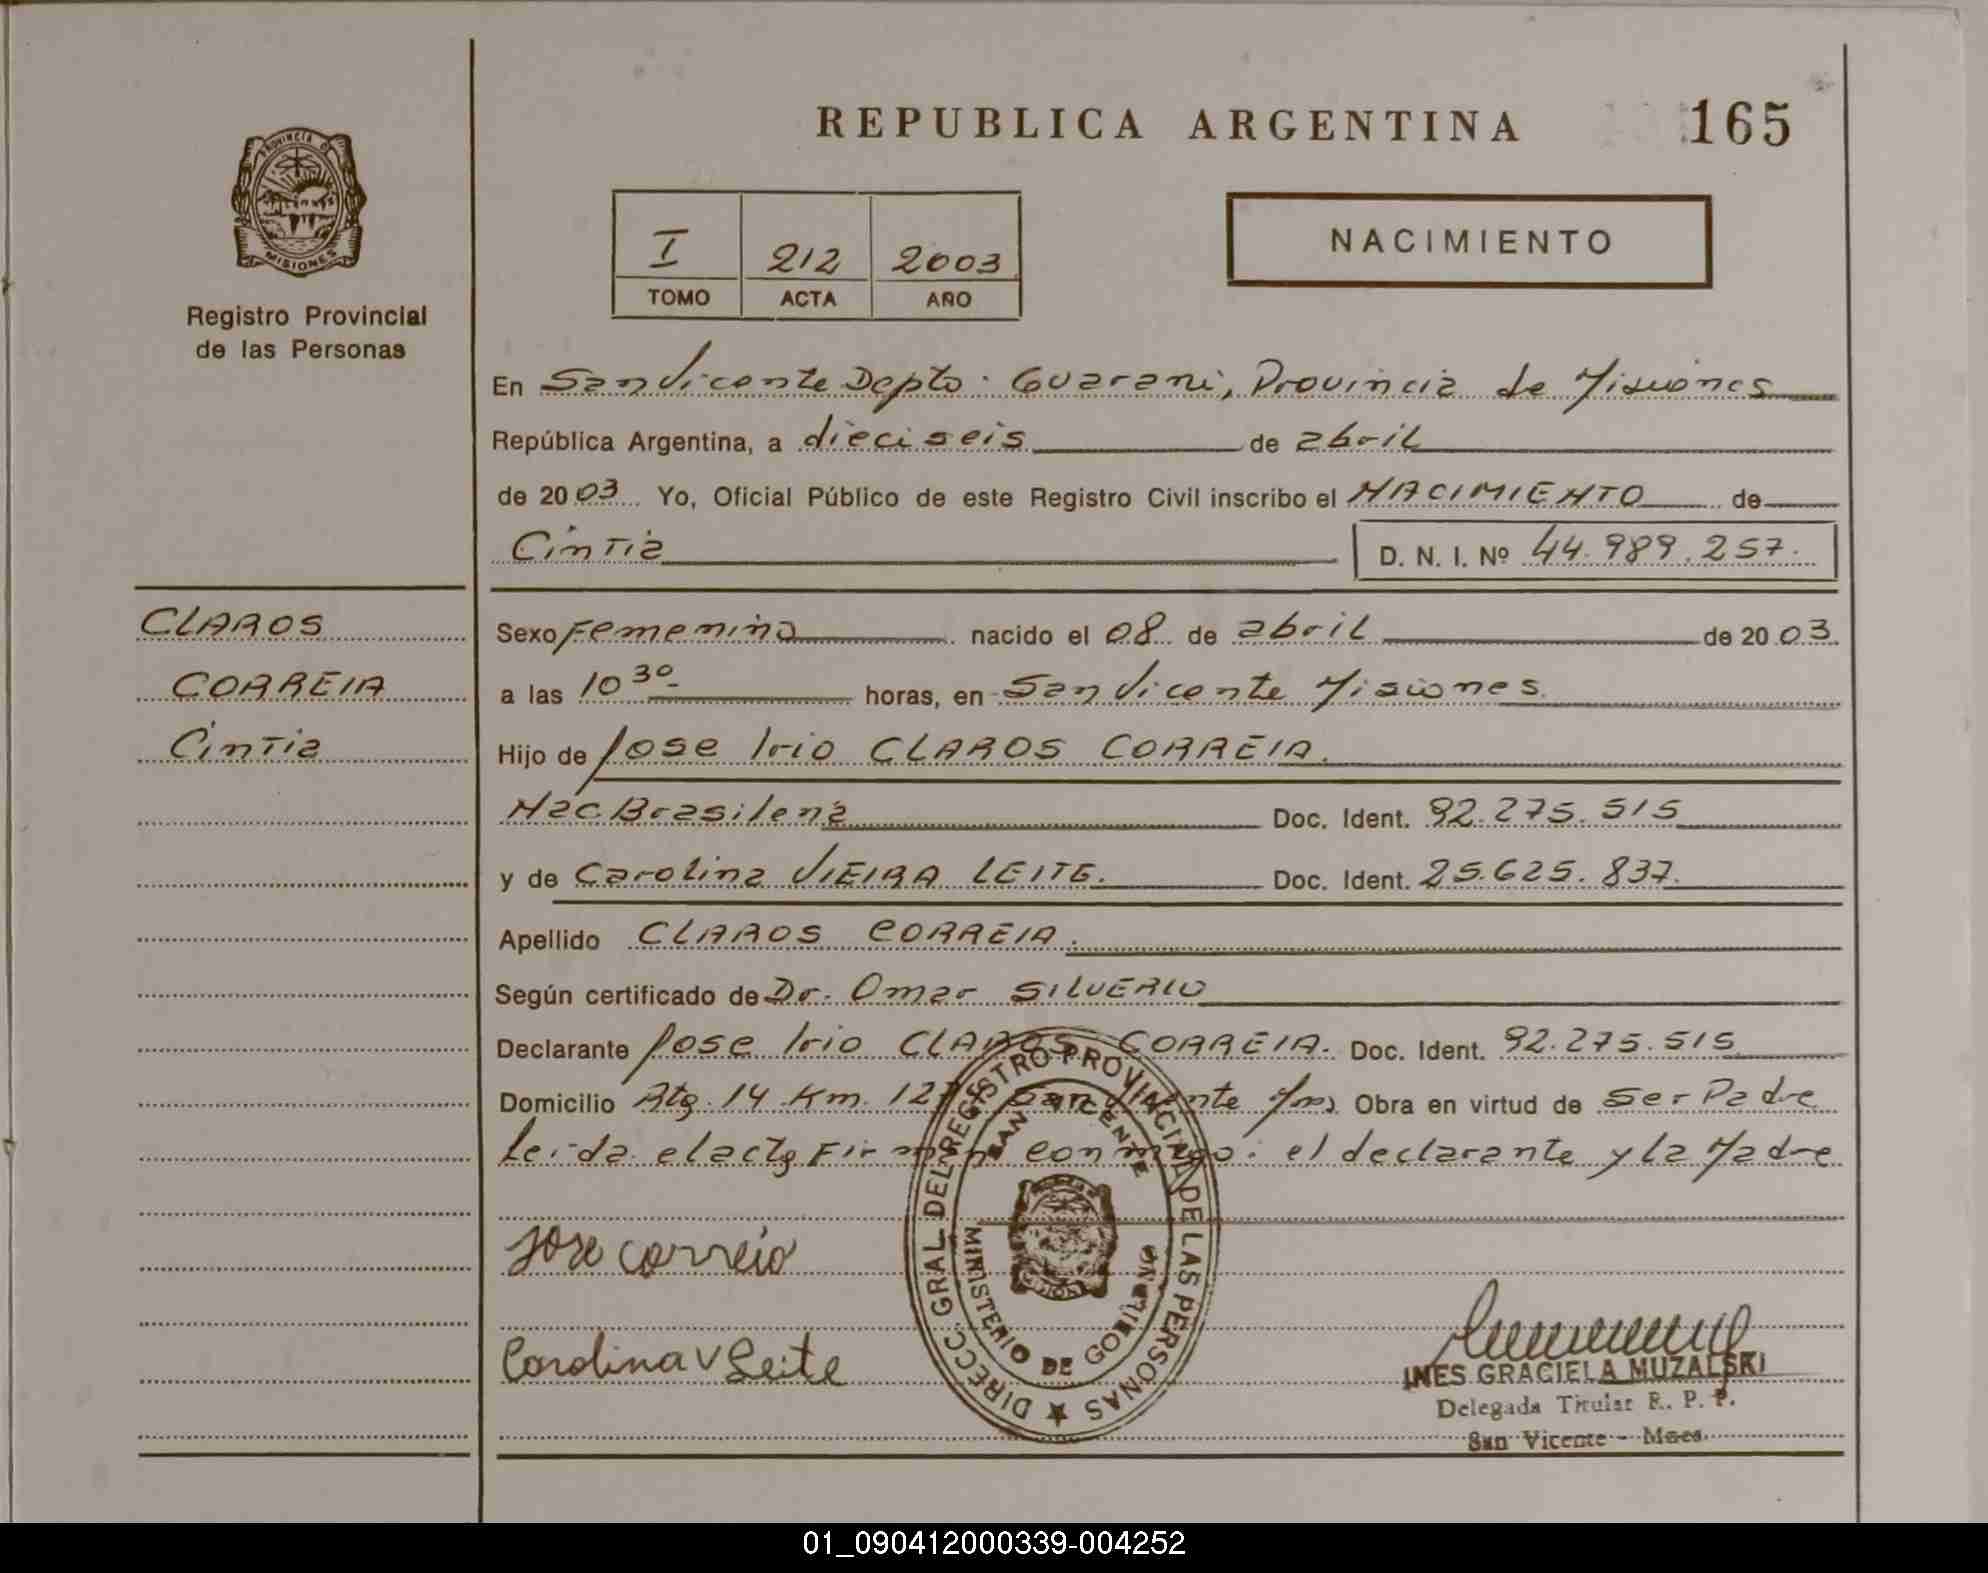 REPUBLICA ARGENTINA 165
PROVINCIA D
MISIONES
Registro Provincial
de las Personas
I 212 2003
TOMO ACTA AÑO
NACIMIENTO
En San Vicente Depto. Guarani, Provincia de Misiones
República Argentina, a dieciseis de abril
de 2003 Yo, Oficial Público de este Registro Civil inscribo el NACIMIENTO de
Cintia D. N. I. Nº 44.989.257.
CLAROS
CORREIA
Cintia
Sexo Femenino nacido el 08 de abril de 2003
a las 10 30 horas, en San Vicente Misiones
Hijo de Jose Irio CLAROS CORREIA.
Nac Brasilena Doc. Ident. 92.275.515
y de Carolina VIEIRA LEITE. Doc. Ident. 25.625.837.
Apellido CLAROS CORREIA.
Según certificado de Dr. Omar SILVERIO
Declarante Jose Irio CLAROS CORREIA. Doc. Ident. 92.275.515
Domicilio Rta. 14 Km. San Vicente Obra en virtud de ser Padre
Leida el acta Firman conmigo: el declarante y la Madre
Jose Correio
Carolina V Leite
DIRECC. GRAL. DEL REGISTRO PROVINCIAL DE LAS PERSONAS
SAN VICENTE
MINISTERIO DE GOBIERNO
INES GRACIELA MUZALSKI
Delegada Titular R. P. P.
San Vicente - Mnes.
01_090412000339-004252